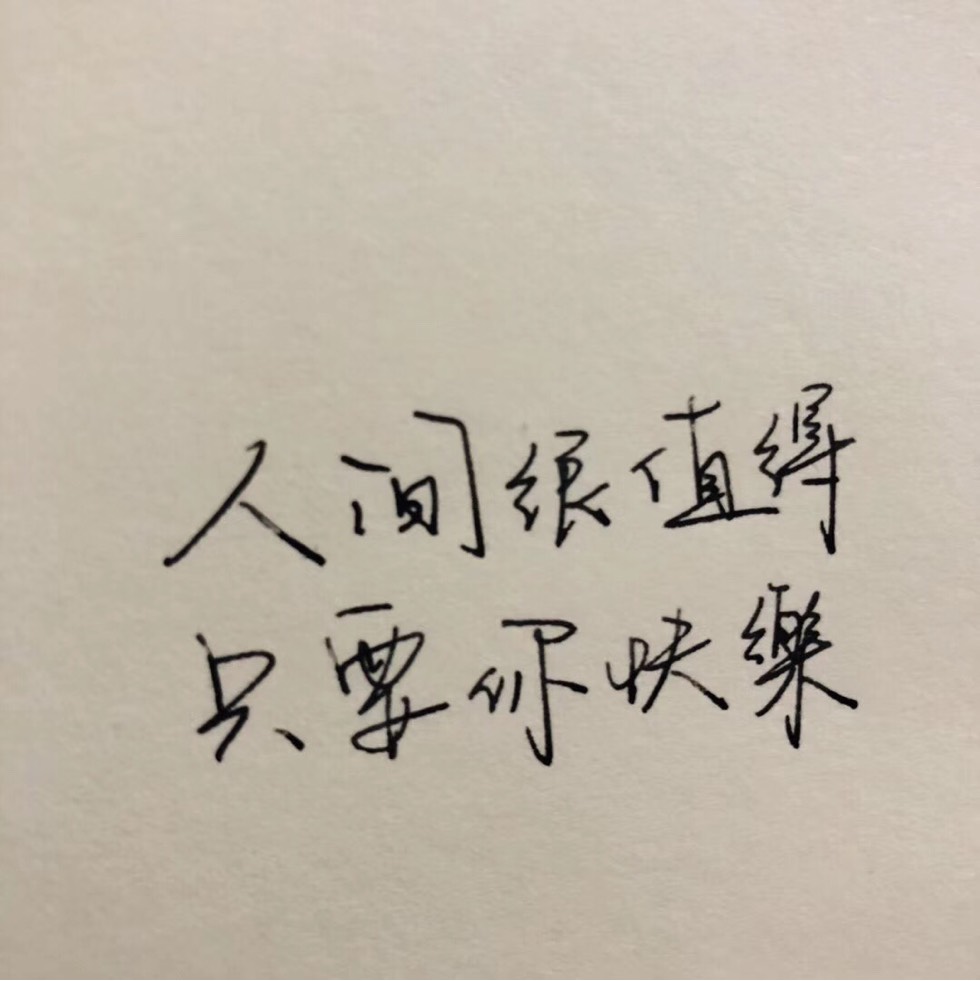 人间很值得
只要你快樂